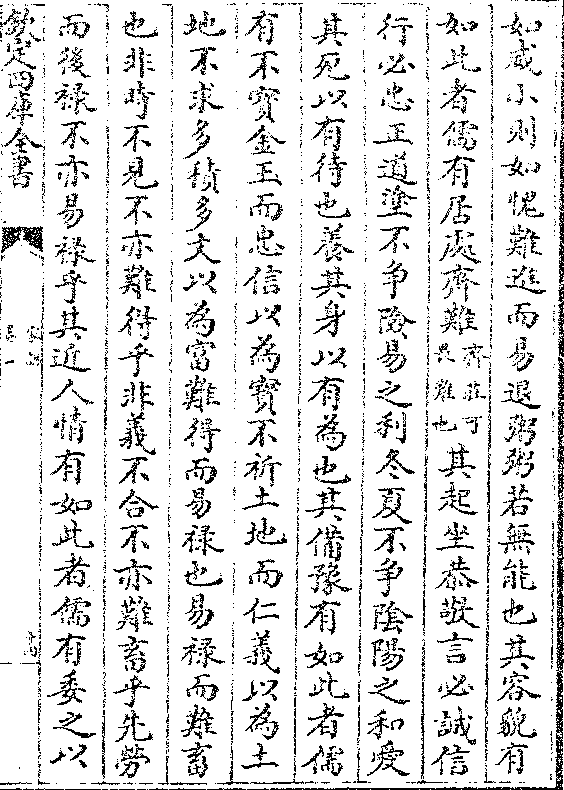 如威小則如愧難進而易退粥粥若無能也其容貌有
如此者儒有居處齊難齊莊可畏難也其起坐恭敬言必誠信
行必忠正道塗不爭險易之利冬夏不爭陰陽之和愛
其死以有待也養其身以有為也其備豫有如此者儒
有不寳金玉而忠信以為寳不祈土地而仁義以為土
地不求多積多文以為富難得而易禄也易禄而難畜
也非時不見不亦難得乎非義不合不亦難畜乎先勞
而後禄不亦易禄乎其近人情有如此者儒有委之以
欽定四庫全書